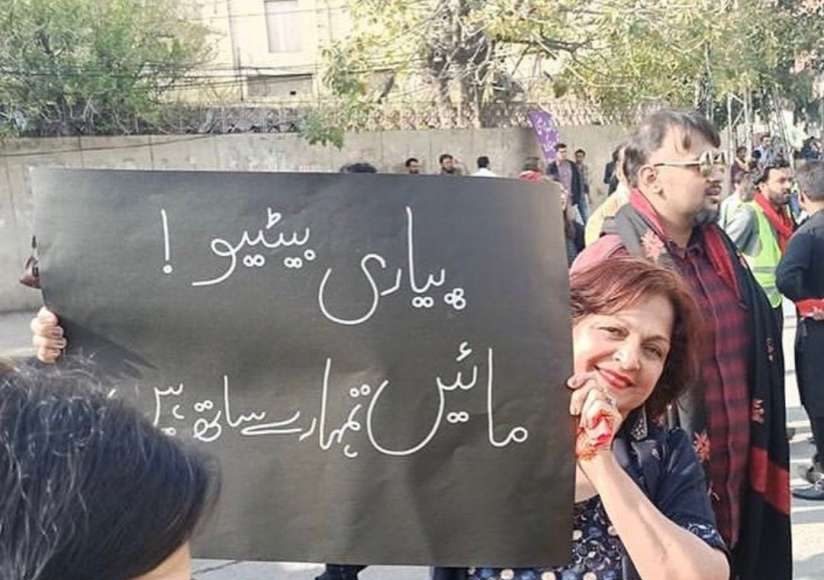 پیاری بیٹیو!
مائیں تمہارے ساتھ ہیں